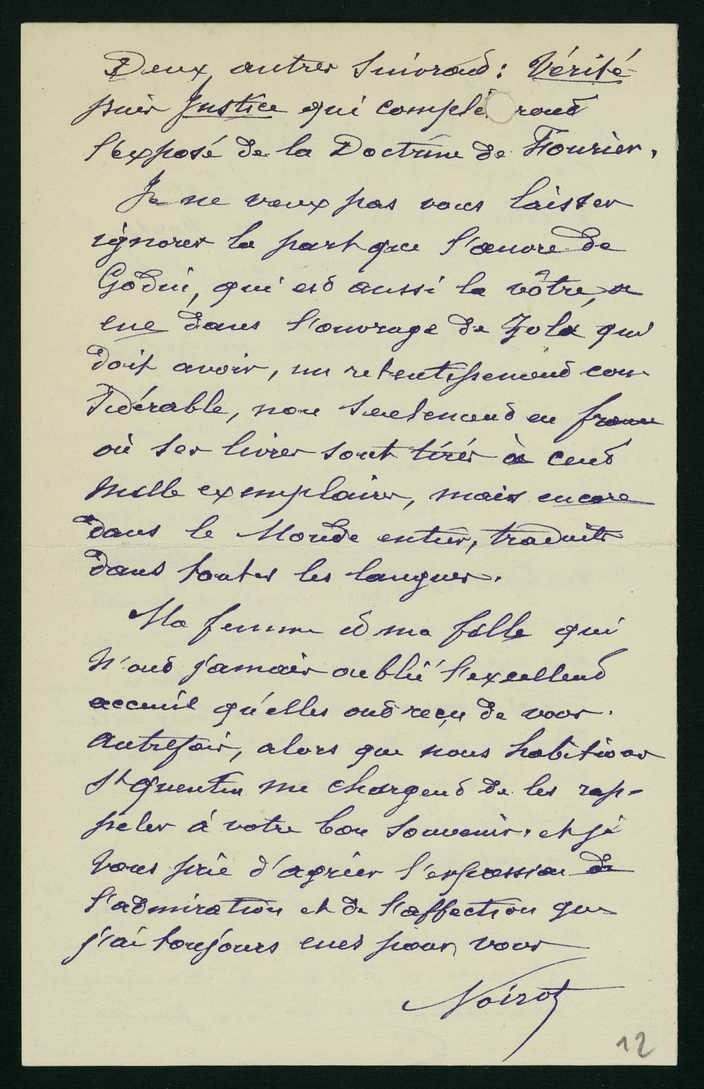 Deux autres suivront : Vérité
puis Justice qui complè ront
l'exposé de la Doctrine de Fourier.
Je ne veux pas vous laisser
ignorer la part que l'œuvre de
Godin, qui est aussi la vôtre, a
eue dans l'ouvrage de Zola qui
doit avoir, un retentissement con-
sidérable, non seulement en france
où ses livres sont tirés à cent
mille exemplaires, mais encore
dans le Monde entier, traduits
dans toutes les langues.
Ma femme et ma fille qui
n'ont jamais oublié l'excellent
accueil qu'elles ont reçu de vous
autrefois, alors que nous habitions
St Quentin me chargent de les rap-
peler à votre bon souvenir. et je
vous prie d'agréer l'expression de
l'admiration et de l'affection que
j'ai toujours eues pour vous
Noirot
12